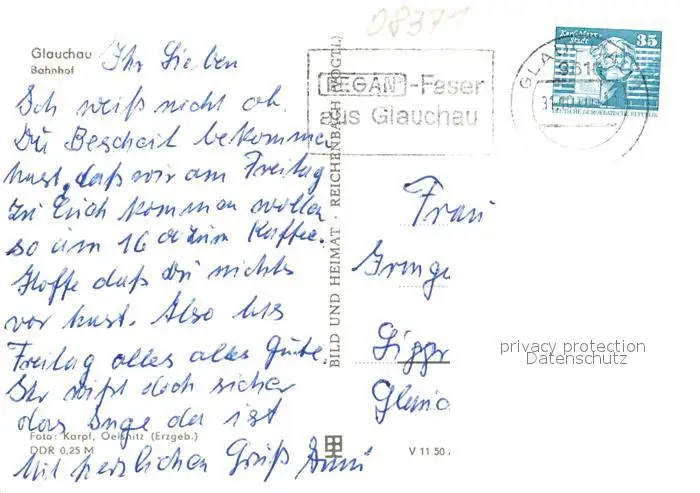 08371
Glauchau
Bahnhof
Ihr Lieben
Ich weiß nicht ob
Du Bescheit bekomme
hast, daß wir am Freitag
zu Euch kommen wollen
so um 16 zum Kaffee.
Hoffe daß Du nichts
vor hast. Also bis
Freitag alles alles Gute.
Ihr wißt doch sicher
das Inge da ist
Mit herzlichen Gruß Anni
Foto: Karpf, Oelsnitz (Erzgeb.)
DDR 0,25 M
BILD UND HEIMAT · REICHENBACH (VOGTL)
V 11 50
REGAN-Faser
aus Glauchau
GLAUCHAU
961
Karl-Marx-
Stadt
35
DEUTSCHE DEMOKRATISCHE REPUBLIK
Frau
privacy protection
Datenschutz